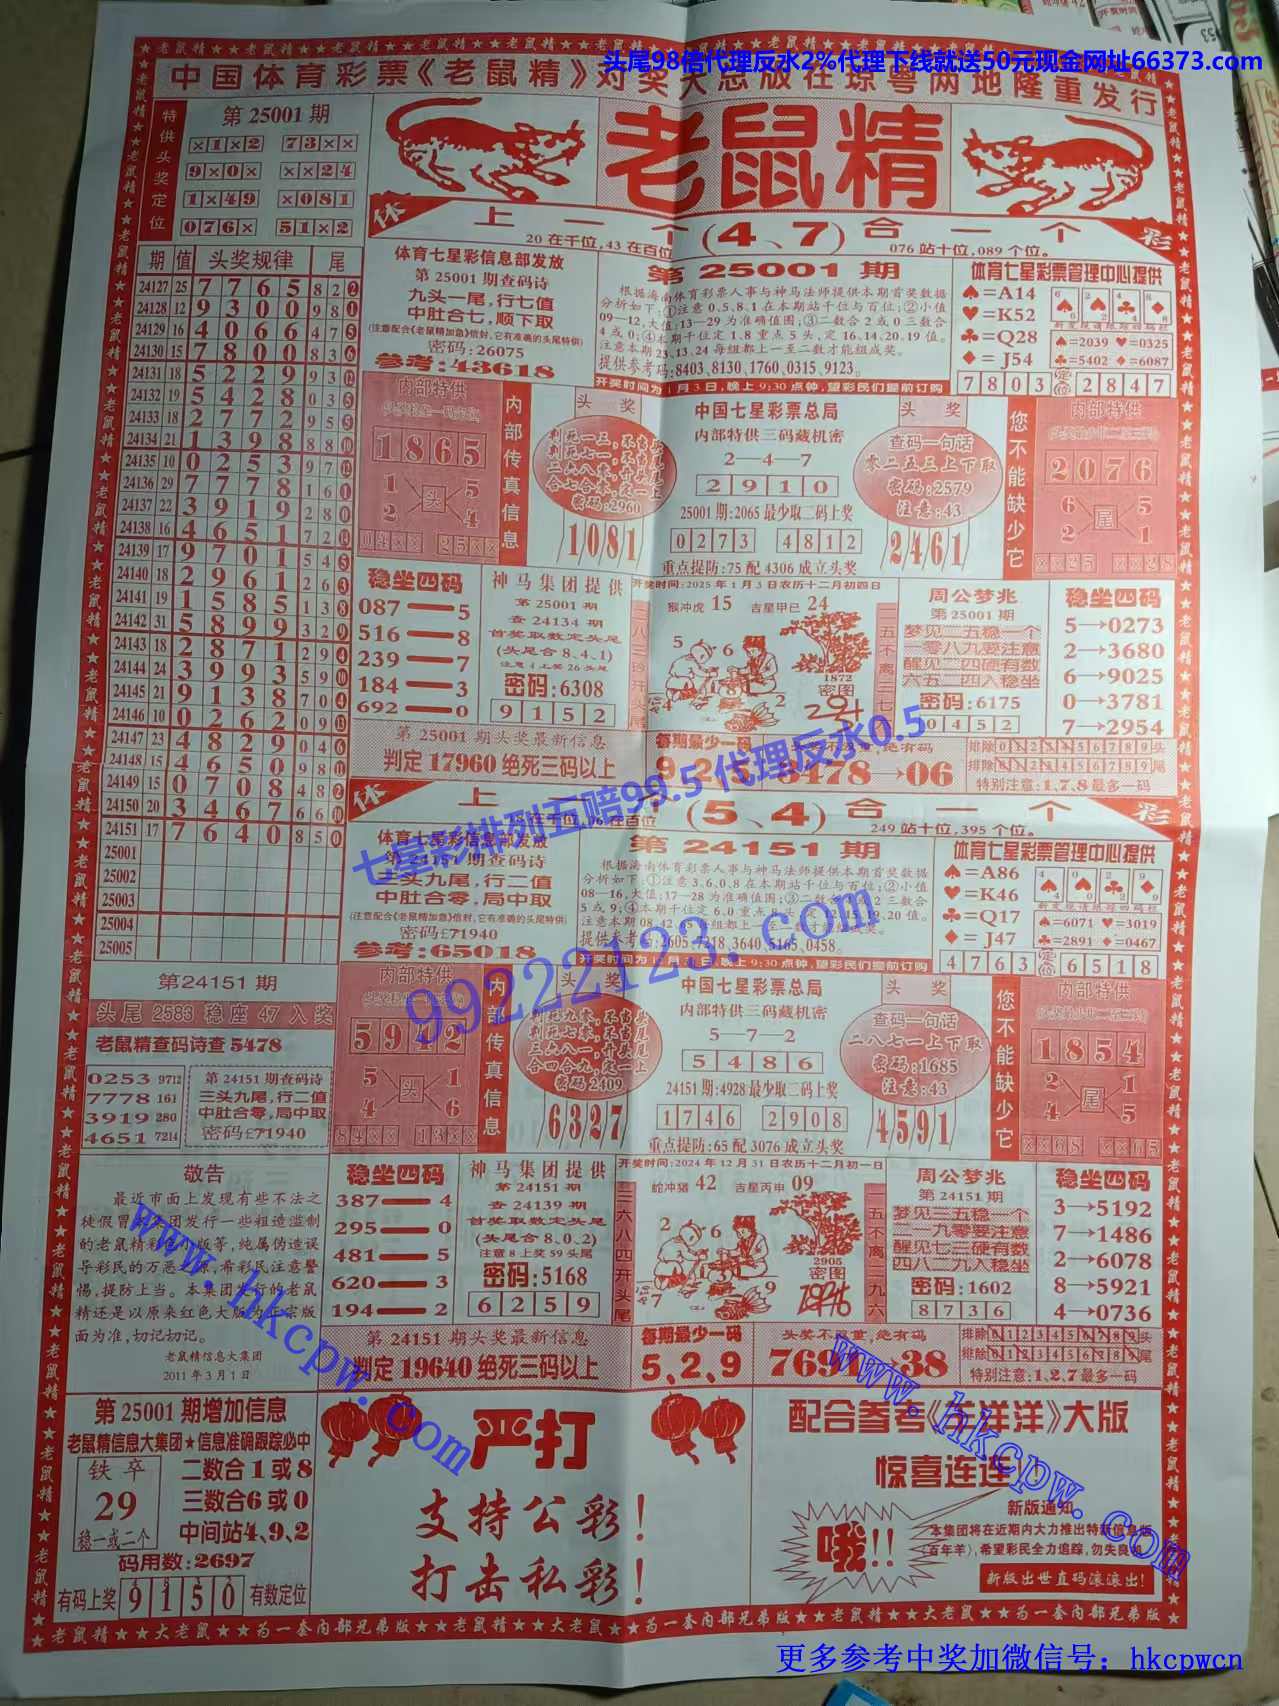 头尾98倍代理反水2%代理下线就送50元现金网址66373.com
中国体育彩票《老鼠精》对奖大总版在琼粤两地隆重发行
特供头奖定位
第 25001 期
×1×2 73××
9×0× ××24
1×49 ×081
076× 51×2
老鼠精
体 上一个(4、7)合一个 彩
20 在千位,43 在百位
076 站十位,089 个位。
期 值 头奖规律 尾
24127 25 7 7 6 5 8 2 2
24128 12 9 3 0 0 9 8 1
24129 16 4 0 6 6 4 7 5
24130 15 7 8 0 0 8 3 6
24131 18 5 2 2 9 9 3 12
24132 19 5 4 2 8 0 3 5
24133 18 2 7 7 2 9 5 5
24134 21 1 3 9 8 8 8 10
24135 10 0 2 5 3 9 7
24136 29 7 7 7 8 1 6 1
24137 22 3 9 1 9 2 8 0
24138 16 4 6 5 1 7 2
24139 17 9 7 0 1 5 4
24140 18 2 9 6 1 2 6 3
24141 19 1 5 8 5 1 3 8
24142 31 5 8 9 9 3 2 9
24143 18 2 8 7 1 2 9 4
24144 24 3 9 9 3 5 9 10
24145 21 9 1 3 8 7 0 4
24146 10 0 2 6 2 0 9
24147 23 4 8 2 9 0 4 6
24148 15 4 6 5 0 9 8
24149 15 0 7 0 8 4 8 2
24150 20 3 4 6 7 6 6 10
24151 17 7 6 4 0 8 5 0
25001
25002
25003
25004
25005
体育七星彩信息部发放
第 25001 期查码诗
九头一尾,行七值
中肚合七,顺下取
(注意配合《老鼠精加急》信封,它有准确的头尾特供)
密码:26075
参考:43618
第 25001 期
根据海南体育彩票人事与神马法师提供本期首奖数据
分析如下:①注意 0.5.8.1 在本期站千位与百位;②小值
09—12,大值:13—29 为准确值围;③二数合 2 或 0 三数合
4 或 0;④本期千位定 1.8 重点 5 头,定 16.14.20.19 值。
注意本期 23.13.24 每组都上一至二数才能组成奖。
提供参考码:8403.8130.1760.0315.9123。
开奖时间为1月3日,晚上9:30点钟,望彩民们提前订购
体育七星彩票管理中心提供
♠=A14
♥=K52
♣=Q28
♦=J54
♠=2039 ♥=0325
♣=5402 ♦=6087
7803 定位 2847
内部特供
1865
1 5
头
2 4
04×× 25××
内部传真信息
头奖
密码:2960
1081
中国七星彩票总局
内部特供三码藏机密
2—4—7
2910
25001 期:2065 最少取二码上奖
0273 4812
重点提防:75 配 4306 成立头奖
头奖
查码一句话
零二五三上下取
密码:2579
注意:43
2461
您不能缺少它
内部特供
2076
6 5
尾
2 1
××25 ××28
稳坐四码
087——5
516——8
239——7
184——3
692——0
神马集团提供
第 25001 期
查 24134 期
首奖取数定头尾
(头尾合 8、4、1)
注意 4 上奖 26 头尾
密码:6308
9152
开奖时间:2025 年 1 月 3 日农历十二月初四日
猴冲虎 15 吉星甲已 24
1872
密图
周公梦兆
第 25001 期
梦见一五稳一个
一零八九要注意
醒见二四硬有数
六五二四入稳坐
密码:6175
0452
稳坐四码
5→0273
2→3680
6→9025
0→3781
7→2954
第 25001 期头奖最新信息
判定 17960 绝死三码以上
每期最少一码
特别注意:1,7,8最多一码
七星彩排列五赔99.5代理反水0.5
体 上一个(5、4)合一个 彩
249 站十位,395 个位。
体育七星彩信息部发放
三头九尾,行二值
中肚合零,局中取
(注意配合《老鼠精加急》信封,它有准确的头尾特供)
密码:71940
参考:65018
第 24151 期
根据海南体育彩票人事与神马法师提供本期首奖数据
分析如下:①注意 3.6.0.8 在本期站千位与百位;②小值
08—16,大值:17—28 为准确值围;③二数合
体育七星彩票管理中心提供
♠=A86
♥=K46
♣=Q17
♦=J47
♠=6071 ♥=3019
♣=2891 ♦=0467
4763 定位 6518
99222123.com
第24151 期
头尾 2583 稳座 47 入奖
老鼠精查码诗查 5478
0253 9712
7778 161
3919 280
4651 7214
第 24151 期查码诗
三头九尾,行二值
中肚合零,局中取
密码:71940
内部特供
5942
5 1
头
4 6
84×× 13××
内部传真信息
头奖
密码:2409
6327
中国七星彩票总局
内部特供三码藏机密
5—7—2
5486
24151 期:4928 最少取二码上奖
1746 2908
重点提防:65 配 3076 成立头奖
头奖
查码一句话
二八七一上下取
密码:1685
注意:43
4591
您不能缺少它
内部特供
1854
2 1
尾
4 5
敬告
最近市面上发现有些不法之
徒假冒本集团发行一些粗造滥制
的老鼠精彩色小版等,纯属伪造误
导彩民的万恶之源,希彩民注意警
惕,提防上当。本集团发行的老鼠
精还是以原来红色大版为正宗版
面为准,切记切记。
老鼠精信息大集团
2011 年 3 月 1 日
稳坐四码
387——4
295——0
481——5
620——3
194——2
神马集团提供
第 24151 期
查 24139 期
首奖取数定头尾
(头尾合 8、0、2)
注意 8 上奖 59 头尾
密码:5168
6259
开奖时间:2024 年 12 月 31 日农历十二月初一日
蛇冲猪 42 吉星丙申 09
三六八四开头尾
2905
密图
一五不离二九六
周公梦兆
第 24151 期
梦见三五稳一个
一九零要注意
醒见七三硬有数
四八二九入稳坐
密码:1602
8736
稳坐四码
3→5192
7→1486
2→6078
8→5921
4→0736
第 24151 期头奖最新信息
判定 19640 绝死三码以上
每期最少一码
5、2、9
特别注意:1,2,7最多一码
www.hkcpw.com
www.hkcpw.com
第 25001 期增加信息
老鼠精信息大集团★信息准确跟踪必中
铁卒
29
稳一或二个
二数合 1 或 8
三数合 6 或 0
中间站4、9、2
码用数:2697
有码上奖 9150 有数定位
严打
支持公彩!
打击私彩!
配合参考《喜洋洋》大版
惊喜连连!
新版通知
哦!!
本集团将在近期内大力推出特新信息版
《百年羊》,希望彩民全力追踪,勿失良机
新版出世直码滚滚出!
★老鼠精★★大老鼠★★为一套内部兄弟版★★老鼠精★★大老鼠★★为一套内部兄弟版
更多参考中奖加微信号: hkcpwcn